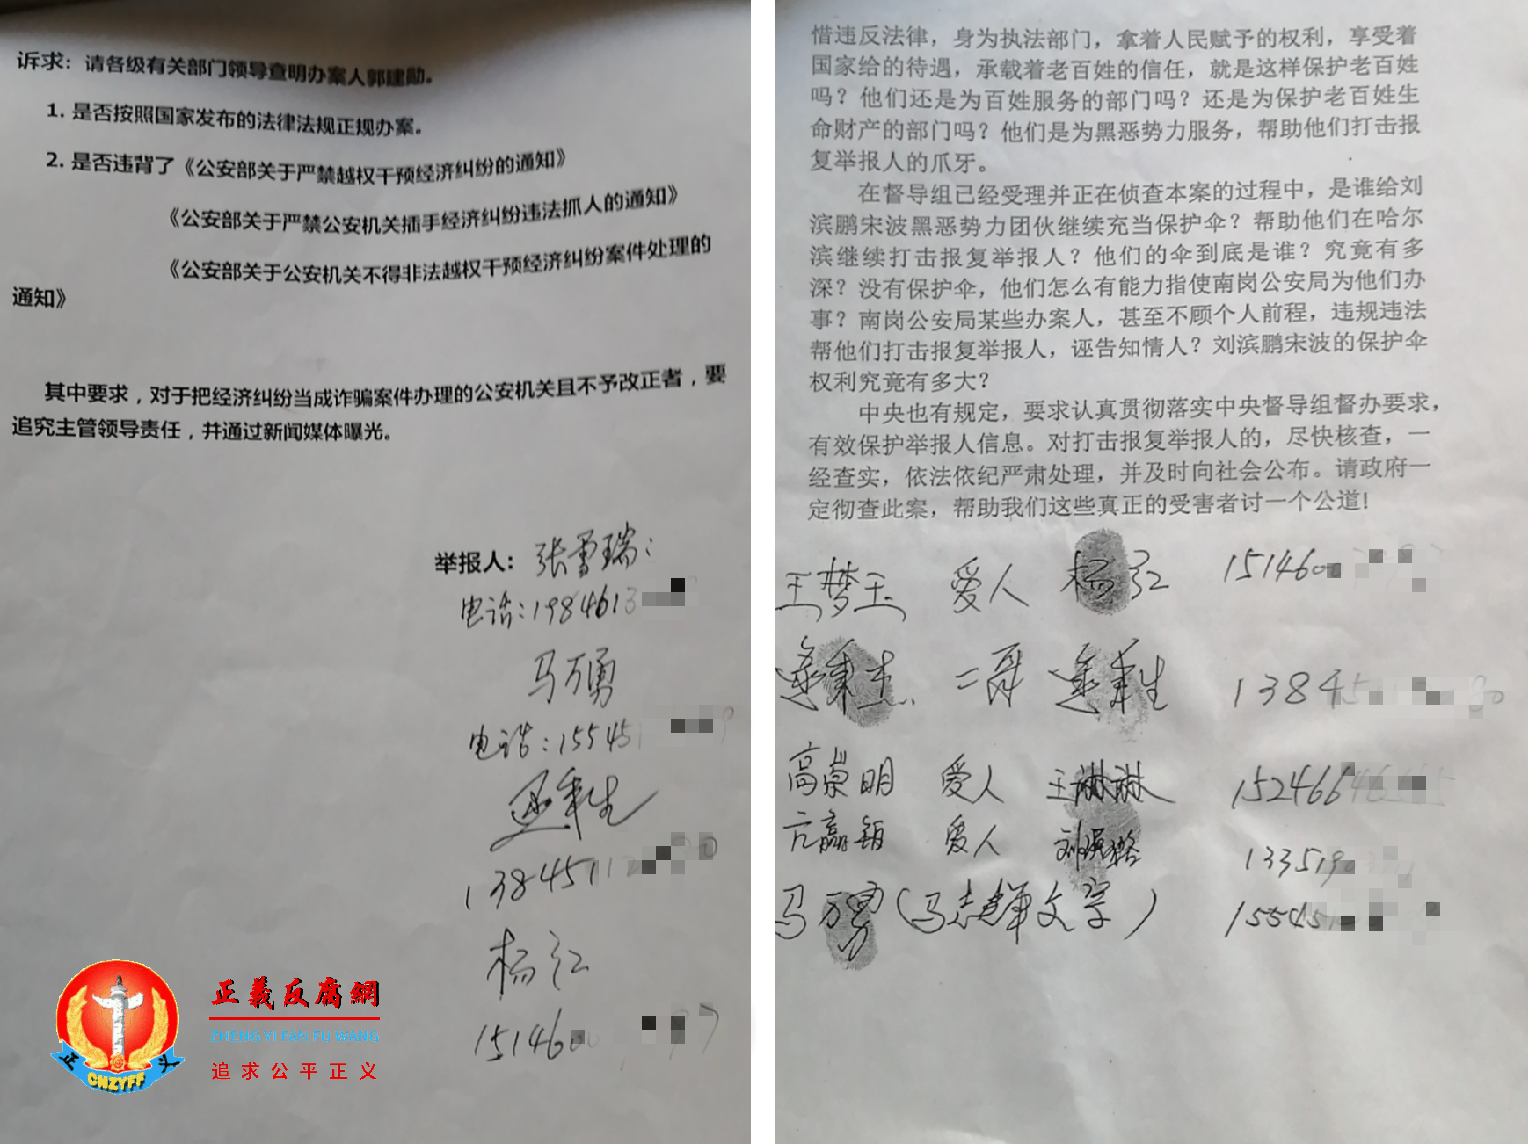 诉求：请各级有关部门领导查明办案人郭建勋。
1. 是否按照国家发布的法律法规正规办案。
2. 是否违背了《公安部关于严禁越权干预经济纠纷的通知》
《公安部关于严禁公安机关插手经济纠纷违法抓人的通知》
《公安部关于公安机关不得非法越权干预经济纠纷案件处理的
通知》
其中要求，对于把经济纠纷当成诈骗案件办理的公安机关且不予改正者，要
追究主管领导责任，并通过新闻媒体曝光。
举报人：张雪瑞：
电话：1984613
马万勇
电话：155451
秉生
1384511
杨红
151460
正義反腐網
ZHENG YI FAN FU WANG
追求公平正义
正 义
CNZYFF
惜违反法律，身为执法部门，拿着人民赋予的权利，享受着
国家给的待遇，承载着老百姓的信任，就是这样保护老百姓
吗？他们还是为百姓服务的部门吗？还是为保护老百姓生
命财产的部门吗？他们是为黑恶势力服务，帮助他们打击报
复举报人的爪牙。
在督导组已经受理并正在侦查本案的过程中，是谁给刘
滨鹏宋波黑恶势力团伙继续充当保护伞？帮助他们在哈尔
滨继续打击报复举报人？他们的伞到底是谁？究竟有多
深？没有保护伞，他们怎么有能力指使南岗公安局为他们办
事？南岗公安局某些办案人，甚至不顾个人前程，违规违法
帮他们打击报复举报人，诬告知情人？刘滨鹏宋波的保护伞
权利究竟有多大？
中央也有规定，要求认真贯彻落实中央督导组督办要求，
有效保护举报人信息。对打击报复举报人的，尽快核查，一
经查实，依法依纪严肃处理，并及时向社会公布。请政府一
定彻查此案，帮助我们这些真正的受害者讨一个公道！
王梦玉 爱人 杨红 151460
秉杰 二哥 秉生 13845
高崇明 爱人 王琳琳 152466
爱人 133519
马万勇（马志辉文字） 155451